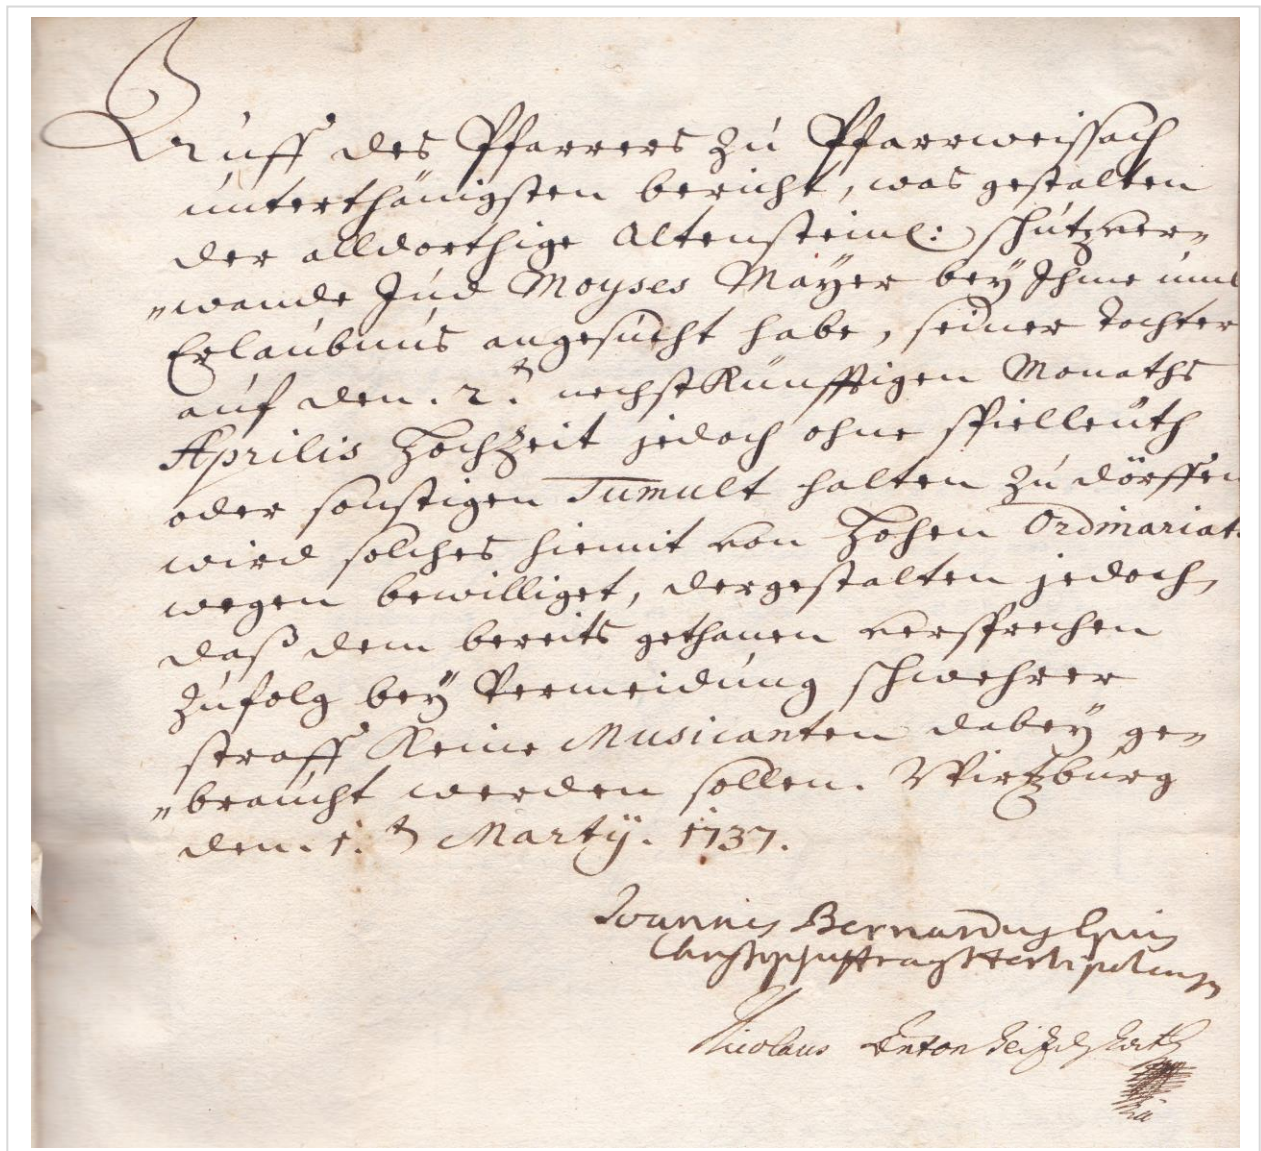 Auff des Pfarrers zu Pfarrweissach
unterthänigsten bericht, was gestalten
der alldorthige Altensteinl: schutzver„
„wande Jud Moyses Mayer bey Ihme umb
Erlaubnus angesucht habe, seiner tochter
auf den. 2.t nechstkünfftigen Monaths
Aprilis Hochzeit jedoch ohne spielleuth
oder sonstigen Tumult halten zu dörffen
wird solches hiemit von Hohen Ordinariats
wegen bewilliget, dergestalten jedoch,
daß dem bereits gethanen versprechen
zufolg bey Vermeidung schwehrer
straff Keine Musicanten dabey ge„
„braucht werden sollen. Wirtzburg
den. 1.t Martÿ. 1737.
Joannes Bernardus Epūs
Christop: suffrag Herbipolensis
Nicolaus Anton